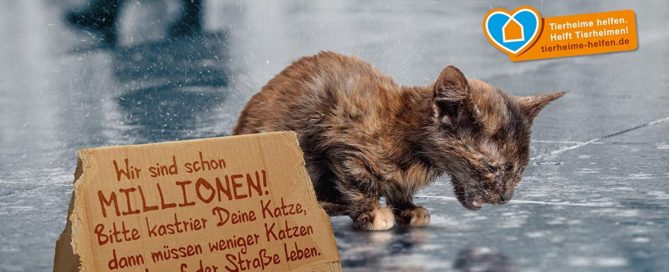 Tierheime helfen.
Helft Tierheimen!
tierheime-helfen.de
Wir sind schon
MILLIONEN!
Bitte kastrier Deine Katze,
dann müssen weniger Katzen
auf der Straße leben.